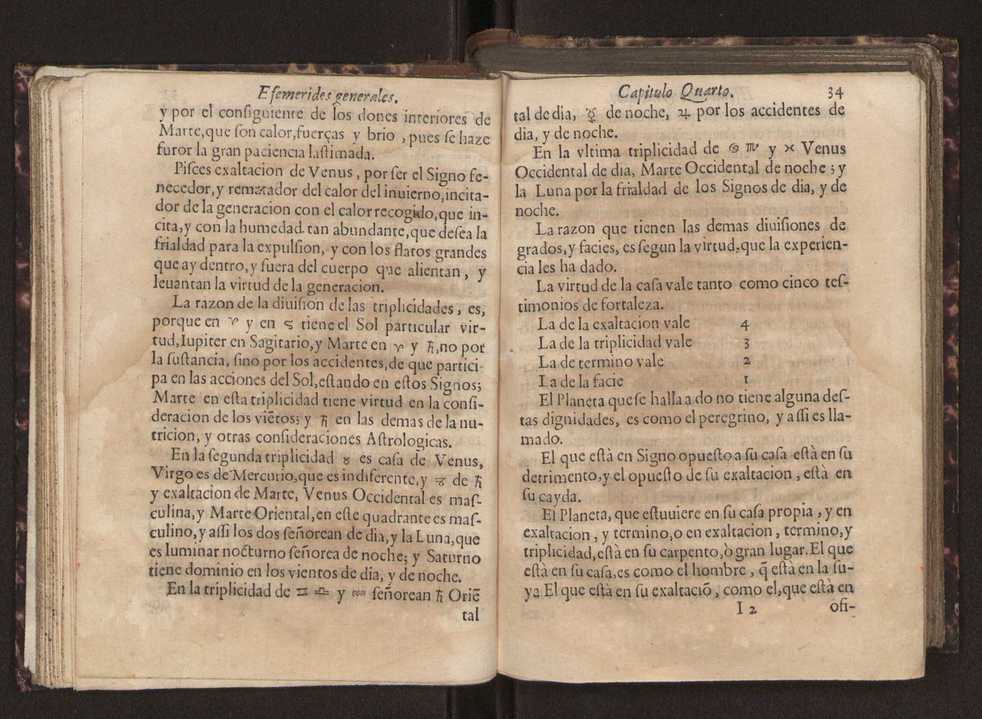 Efemerides generales.
y por el consiguiente de los dones interiores de
Marte, que ſon calor, fuerças y brio, pues ſe haze
furor la gran paciencia laſtimada.
Piſces exaltacion de Venus, por ſer el Signo fe-
necedor, y rematador del calor del inuierno, incita-
dor de la generacion con el calor recogido, que in-
cita, y con la humedad tan abundante, que deſea la
frialdad para la expulſion, y con los flatos grandes
que ay dentro, y fuera del cuerpo que alientan, y
leuantan la virtud de la generacion.
La razon de la diuiſion de las triplicidades, es,
porque en ♈ y en ♌ tiene el Sol particular vir-
tud, Iupiter en Sagitario, y Marte en ♈ y ♄, no por
la ſuſtancia, ſino por los accidentes, de que partici-
pa en las acciones del Sol, eſtando en eſtos Signos;
Marte en eſta triplicidad tiene virtud en la conſi-
deracion de los viẽtos; y ♄ en las demas de la nu-
tricion, y otras conſideraciones Aſtrologicas.
En la ſegunda triplicidad ♉ es caſa de Venus,
Virgo es de Mercurio, que es indiferente, y ♑ de ♄
y exaltacion de Marte, Venus Occidental es maſ-
culina, y Marte Oriental, en eſte quadrante es maſ-
culino, y aſſi los dos ſeñorean de dia, y la Luna, que
es luminar nocturno ſeñorea de noche; y Saturno
tiene dominio en los vientos de dia, y de noche.
En la triplicidad de ♊ ♎ y ♒ ſeñorean ♄ Oriẽ
tal
Capitulo Quarto. 34
tal de dia, ☿ de noche, ♃ por los accidentes de
dia, y de noche.
En la vltima triplicidad de ♋ ♏ y ♓ Venus
Occidental de dia, Marte Occidental de noche; y
la Luna por la frialdad de los Signos de dia, y de
noche.
La razon que tienen las demas diuiſiones de
grados, y facies, es ſegun la virtud, que la experien-
cia les ha dado.
La virtud de la caſa vale tanto como cinco teſ-
timonios de fortaleza.
La de la exaltacion vale 4
La de la triplicidad vale 3
La de termino vale 2
La de la facie 1
El Planeta que ſe halla a do no tiene alguna deſ-
tas dignidades, es como el peregrino, y aſſi es lla-
mado.
El que eſtà en Signo opueſto a ſu caſa eſtà en ſu
detrimento, y el opueſto de ſu exaltacion, eſtà en
ſu cayda.
El Planeta, que eſtuuiere en ſu caſa propia, y en
exaltacion, y termino, o en exaltacion, termino, y
triplicidad, eſtà en ſu carpento, ò gran lugar. El que
eſtà en ſu caſa, es como el hombre, q̃ eſtà en la ſu-
ya El que eſtà en ſu exaltaciõ, como el, que eſtà en
I 2 ofi-